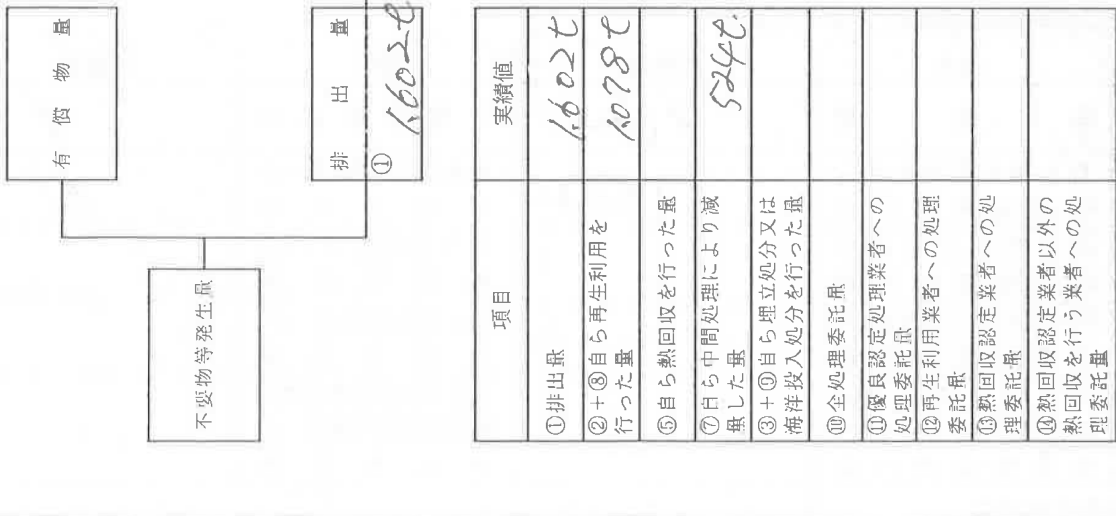 有償物量
不要物等発生量
排出量
① 1,602t
項目 実績値
①排出量 1,602t
②+⑧自ら再生利用を
行った量 1,078t
⑤自ら熱回収を行った量
⑦自ら中間処理により減
量した量 524t
③+⑨自ら埋立処分又は
海洋投入処分を行った量
⑩全処理委託量
⑪優良認定処理業者への
処理委託量
⑫再生利用業者への処理
委託量
⑬熱回収認定業者への処
理委託量
⑭熱回収認定業者以外の
熱回収を行う業者への処
理委託量